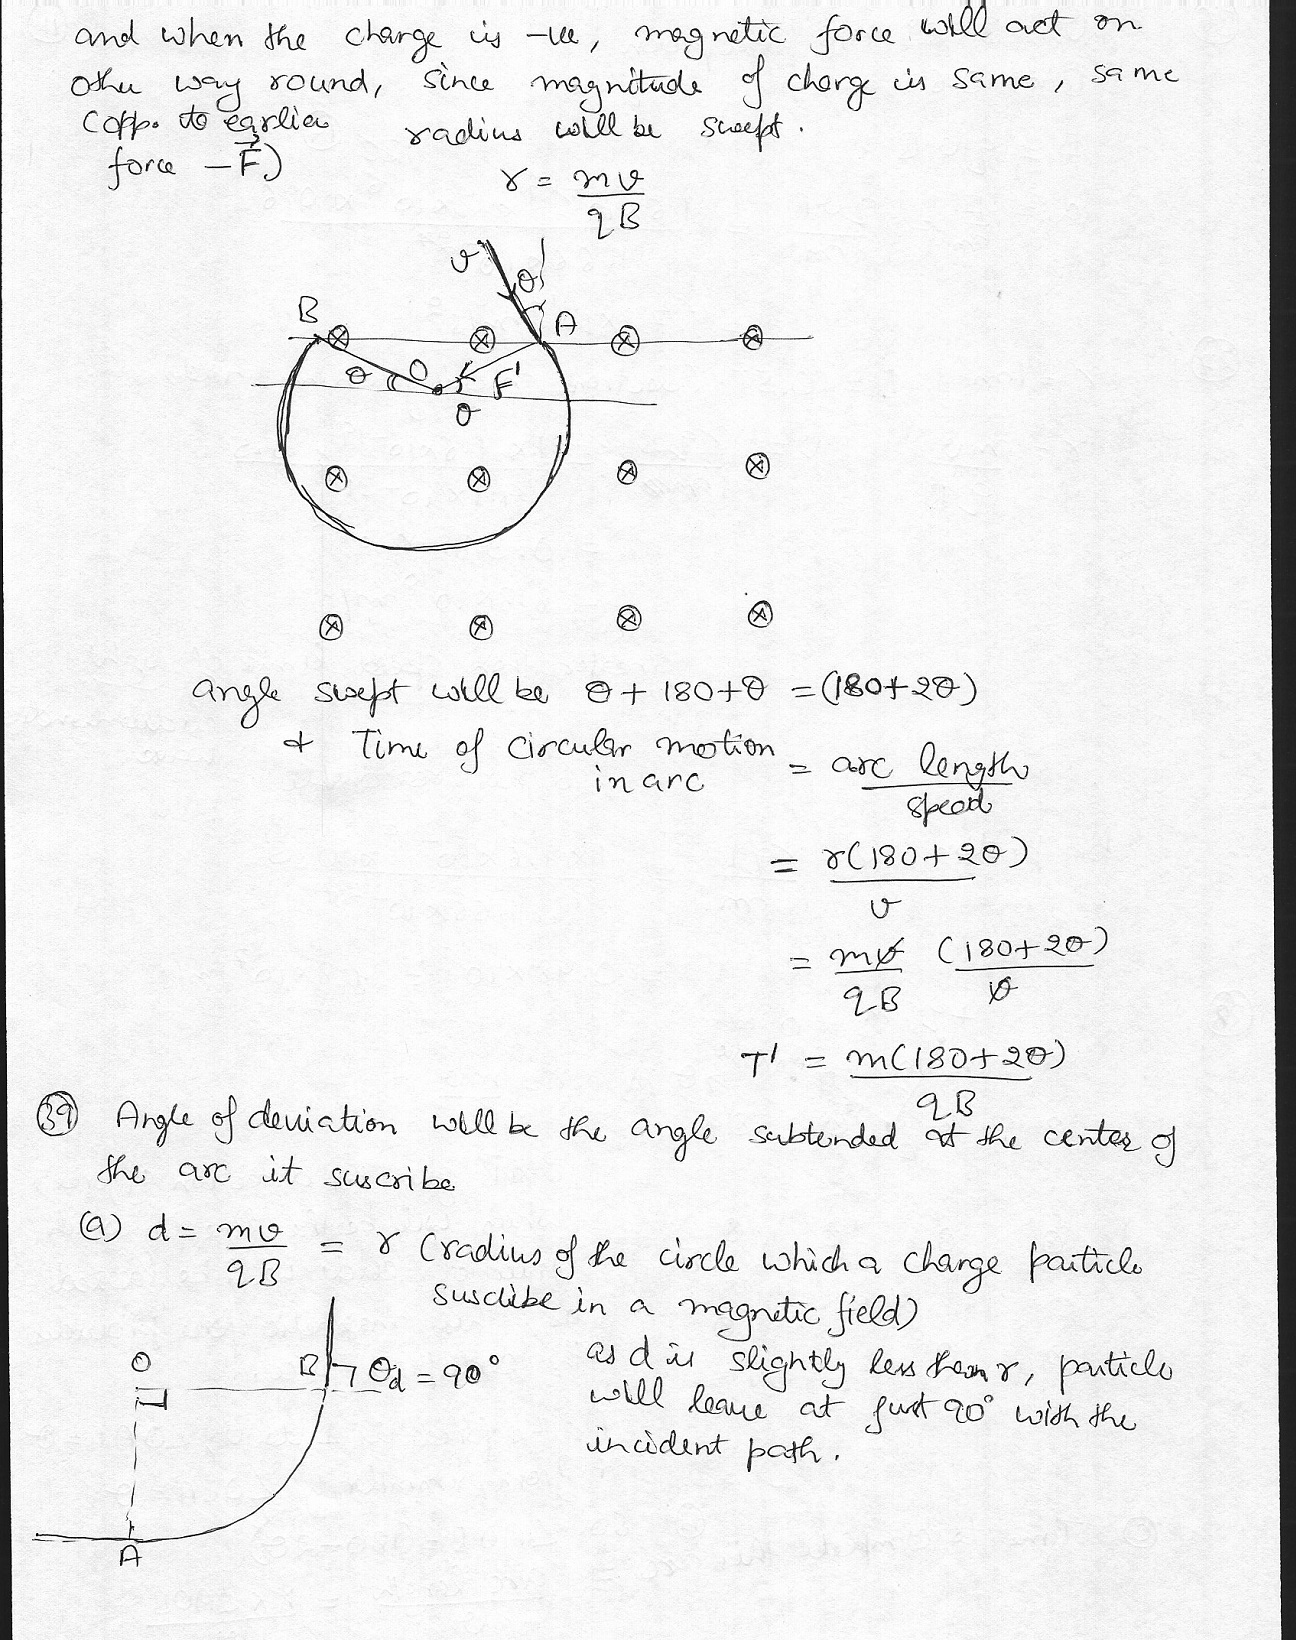 and when the charge is -ve, magnetic force will act on
other way round, since magnitude of charge is same, same
(opp. to earlier radius will be swept.
force -F⃗)
r = mv/qB
v θ
B ⊗ ⊗ A ⊗ ⊗
θ O F'
θ
⊗ ⊗ ⊗ ⊗
⊗ ⊗ ⊗ ⊗
angle swept will be θ + 180 + θ = (180 + 2θ)
& Time of circular motion in arc = arc length/speed
= r(180 + 2θ)/v
= mv/qB (180 + 2θ)/v
T' = m(180 + 2θ)/qB
39 Angle of deviation will be the angle subtended at the center of
the arc it suscribe
(a) d = mv/qB = r (radius of the circle which a charge particle
suscribe in a magnetic field)
O B θd = 90° as d is slightly less than r, particle
will leave at just 90° with the
incident path.
A